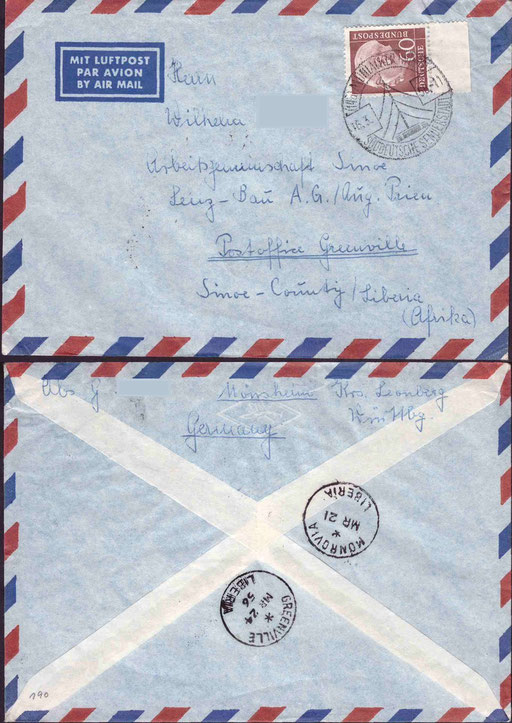 MIT LUFTPOST
PAR AVION
BY AIR MAIL
60
DEUTSCHE
BUNDESPOST
SÜDDEUTSCHE
Herrn
Wilhelm
Arbeitsgemeinschaft Sinoe
Lenz-Bau A.G./Aug. Prien
Postoffice Greenville
Sinoe-County/Liberia
(Afrika)
Abs. G
Mönsheim Krs. Leonberg
Württbg.
Germany
MONROVIA
*
MR 21
LIBERIA
GREENVILLE
*
MR 24
56
LIBERIA
190